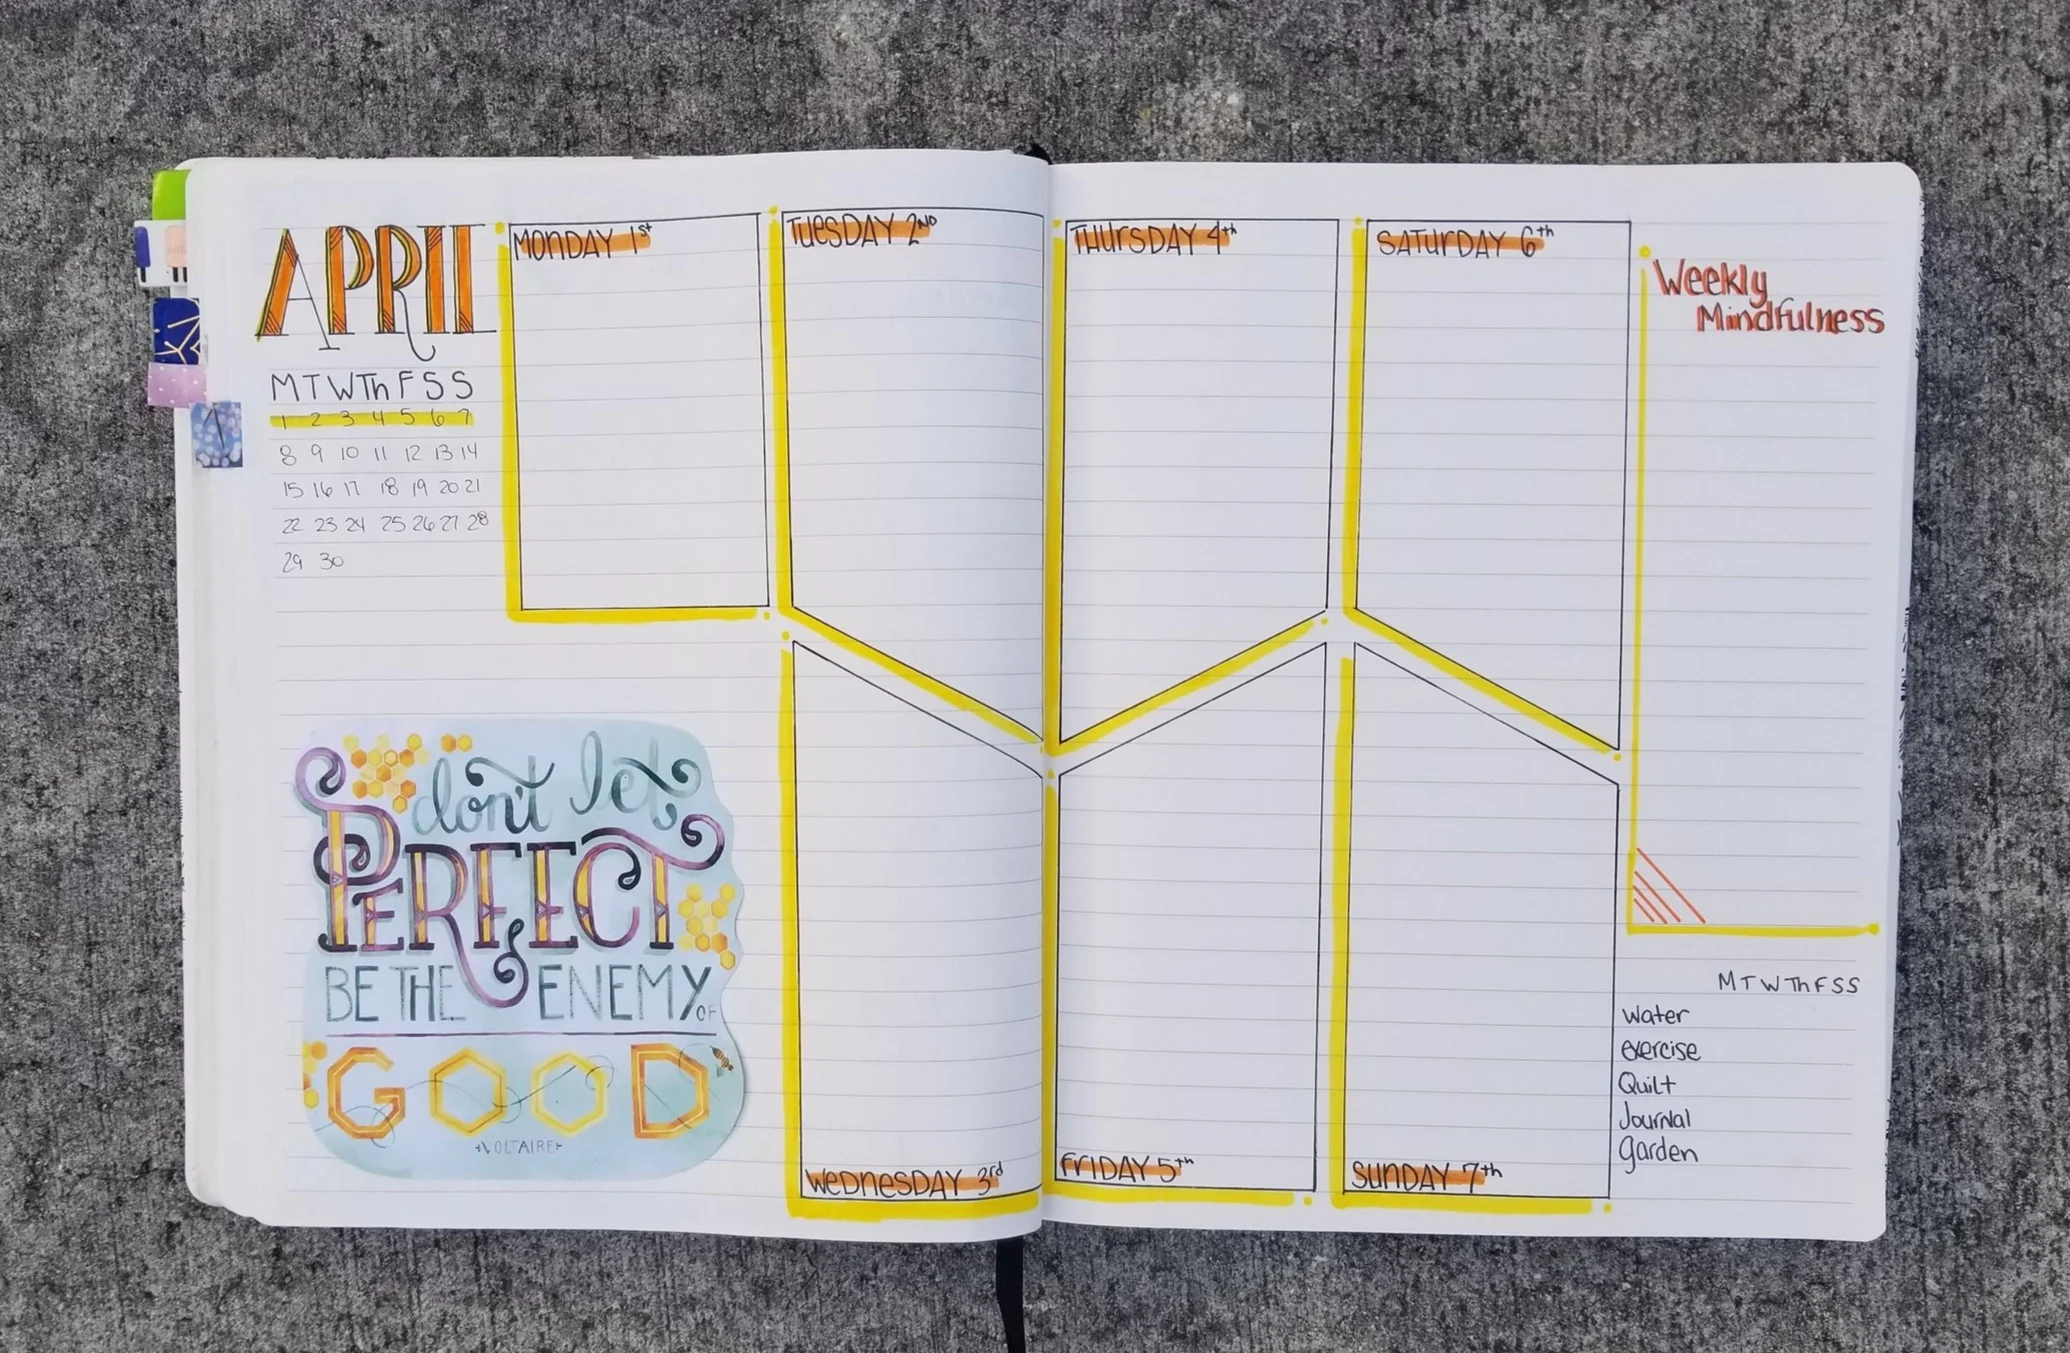 APRIL
M T W Th F S S
1 2 3 4 5 6 7
8 9 10 11 12 13 14
15 16 17 18 19 20 21
22 23 24 25 26 27 28
29 30
don't let
PERFECT
BE THE ENEMY OF
GOOD
VOLTAIRE
MONDAY 1st
TUESDAY 2ND
WEDNESDAY 3rd
THURSDAY 4th
FRIDAY 5th
SATURDAY 6th
SUNDAY 7th
Weekly
Mindfulness
M T W Th F S S
water
exercise
Quilt
Journal
garden
A